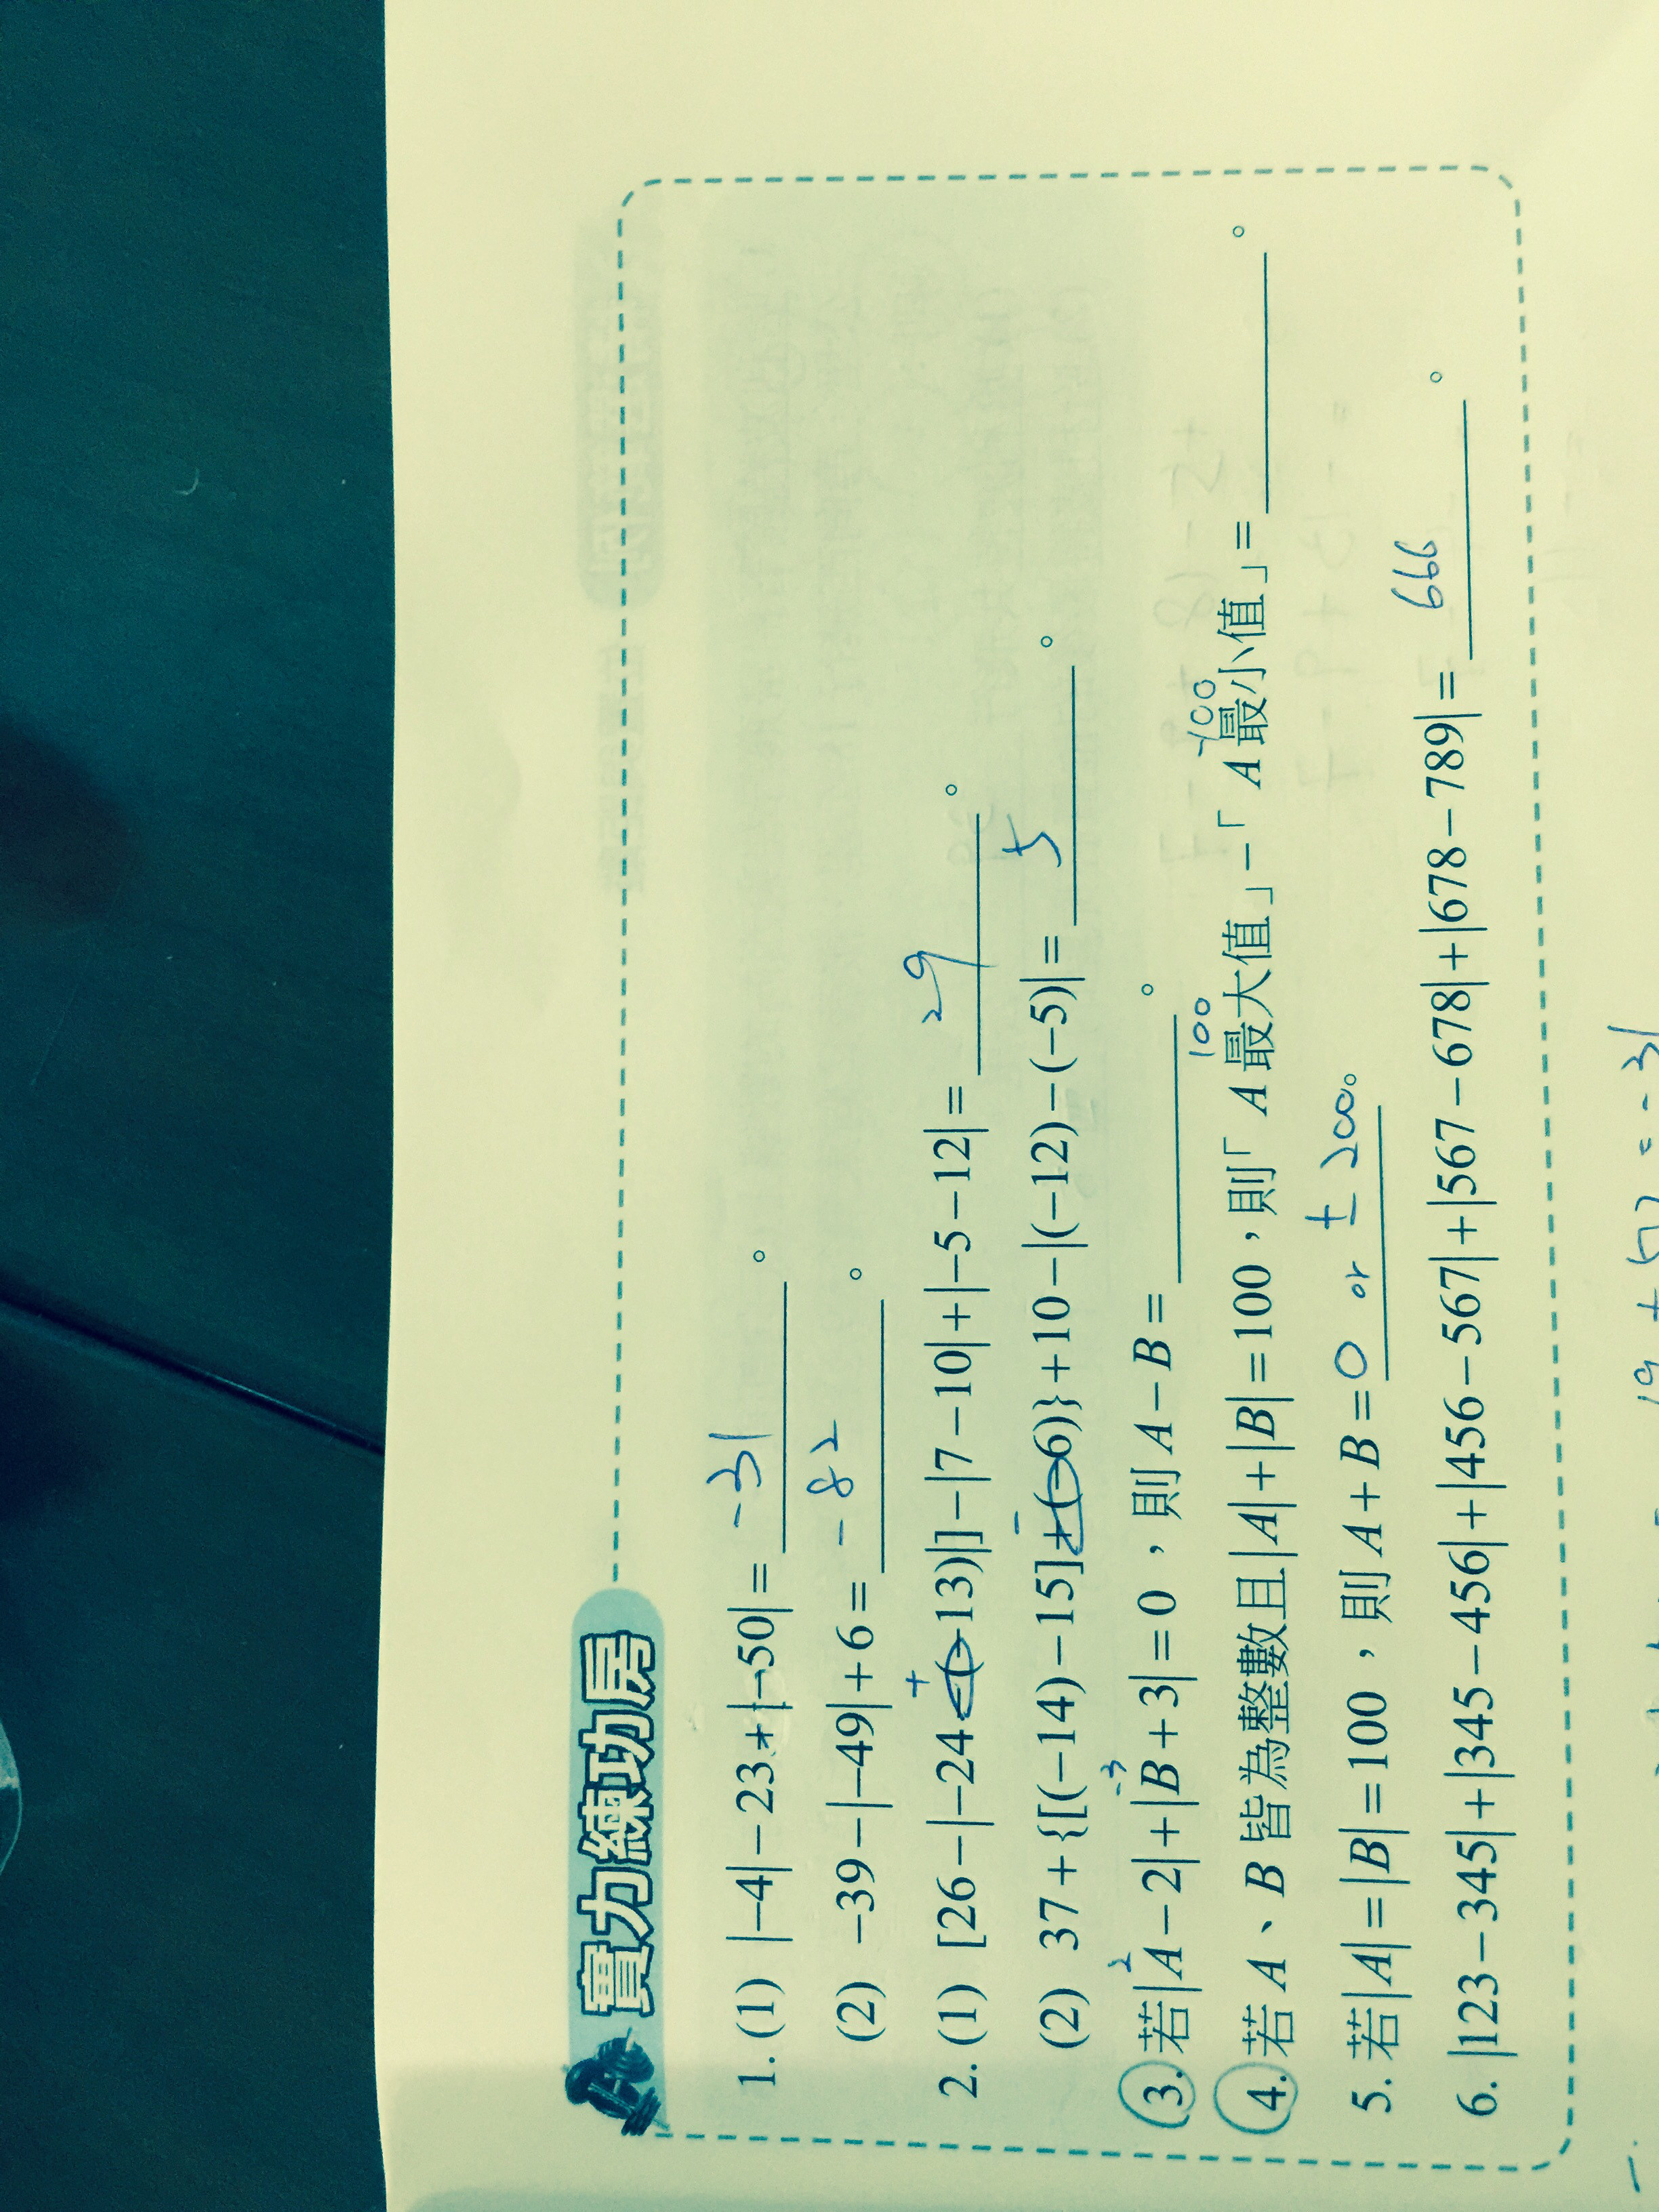 實力練功房
1. (1) |−4|−23+|−50|= -31 。
(2) −39−|−49|+6= -82 。
+ 29
2. (1) [26−|−24−(−13)|]−|7−10|+|−5−12|= 。
- 5
(2) 37+{[(−14)−15]+(−6)}+10−|(−12)−(−5)|= 。
2 -3
3. 若|A−2|+|B+3|=0,則A−B= 。
100 -100
4. 若A、B皆為整數且|A|+|B|=100,則「A最大值」−「A最小值」= 。
5. 若|A|=|B|=100,則A+B= 0 or ± 200 。
6. |123−345|+|345−456|+|456−567|+|567−678|+|678−789|= 666 。
19 + 5 = -31